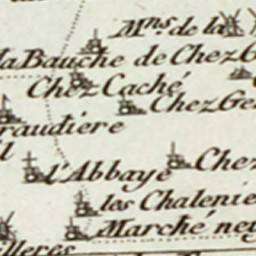 Mns. de la
la Bauche de Chez
Chez Caché
Chez
raudiere
l'Abbaye Chez
les Chalenie
Marché neu
illeres